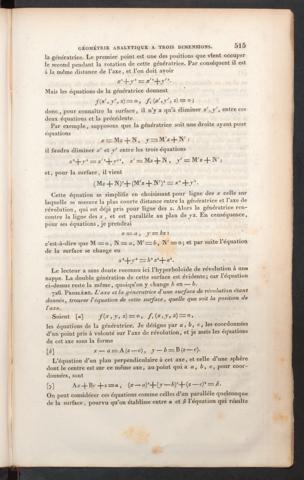 GÉOMÉTRIE ANALYTIQUE A TROIS DIMENSIONS. 515
la génératrice. Le premier point est une des positions que vient occuper
le second pendant la rotation de cette génératrice. Par conséquent il est
à la même distance de l'axe, et l'on doit avoir
x²+y²=x'²+y'².
Mais les équations de la génératrice donnent
f(x',y',z)=0, f,(x',y',z)=0;
donc, pour connaître la surface, il n'y a qu'à éliminer x', y', entre ces
deux équations et la précédente
Par exemple, supposons que la génératrice soit une droite ayant pour
équations
x=Mz+N, y=M'z+N';
il faudra éliminer x' et y' entre les trois équations
x²+y²=x'²+y'², x'=Mz+N, y'=M'z+N';
et, pour la surface, il vient
(Mz+N)²+(M'z+N')²=x²+y².
Cette équation se simplifie en choisissant pour ligne des x celle sur
laquelle se mesure la plus courte distance entre la génératrice et l'axe de
révolution, qui est déjà pris pour ligne des z. Alors la génératrice ren-
contre la ligne des x, et est parallèle au plan de yz. En conséquence,
pour ses équations, je prendrai
x=a, y=bz;
c'est-à-dire que M=0, N=a, M'=b, N'=0; et par suite l'équation
de la surface se change en
x²+y²=b²z²+a².
Le lecteur a sans doute reconnu ici l'hyperboloïde de révolution à une
nappe. La double génération de cette surface est évidente; car l'équation
ci-dessus reste la même, quoiqu'on y change b en —b.
728. PROBLÈME. L'axe et la génératrice d'une surface de révolution étant
donnés, trouver l'équation de cette surface, quelle que soit la position de
l'axe.
Soient [α] f(x,y,z)=0, f,(x,y,z)=0,
les équations de la génératrice. Je désigne par a, b, c, les coordonnées
d'un point pris à volonté sur l'axe de révolution, et je mets les équations
de cet axe sous la forme
[β] x—a=A(z—c), y—b=B(z—c).
L'équation d'un plan perpendiculaire à cet axe, et celle d'une sphère
dont le centre est sur ce même axe, au point qui a a, b, c, pour coor-
données, sont
[γ] Ax+By+z=α, (x—a)²+(y—b)²+(z—c)²=β.
On peut considérer ces équations comme celles d'un parallèle quelconque
de la surface, pourvu qu'on établisse entre α et β l'équation qui résulte